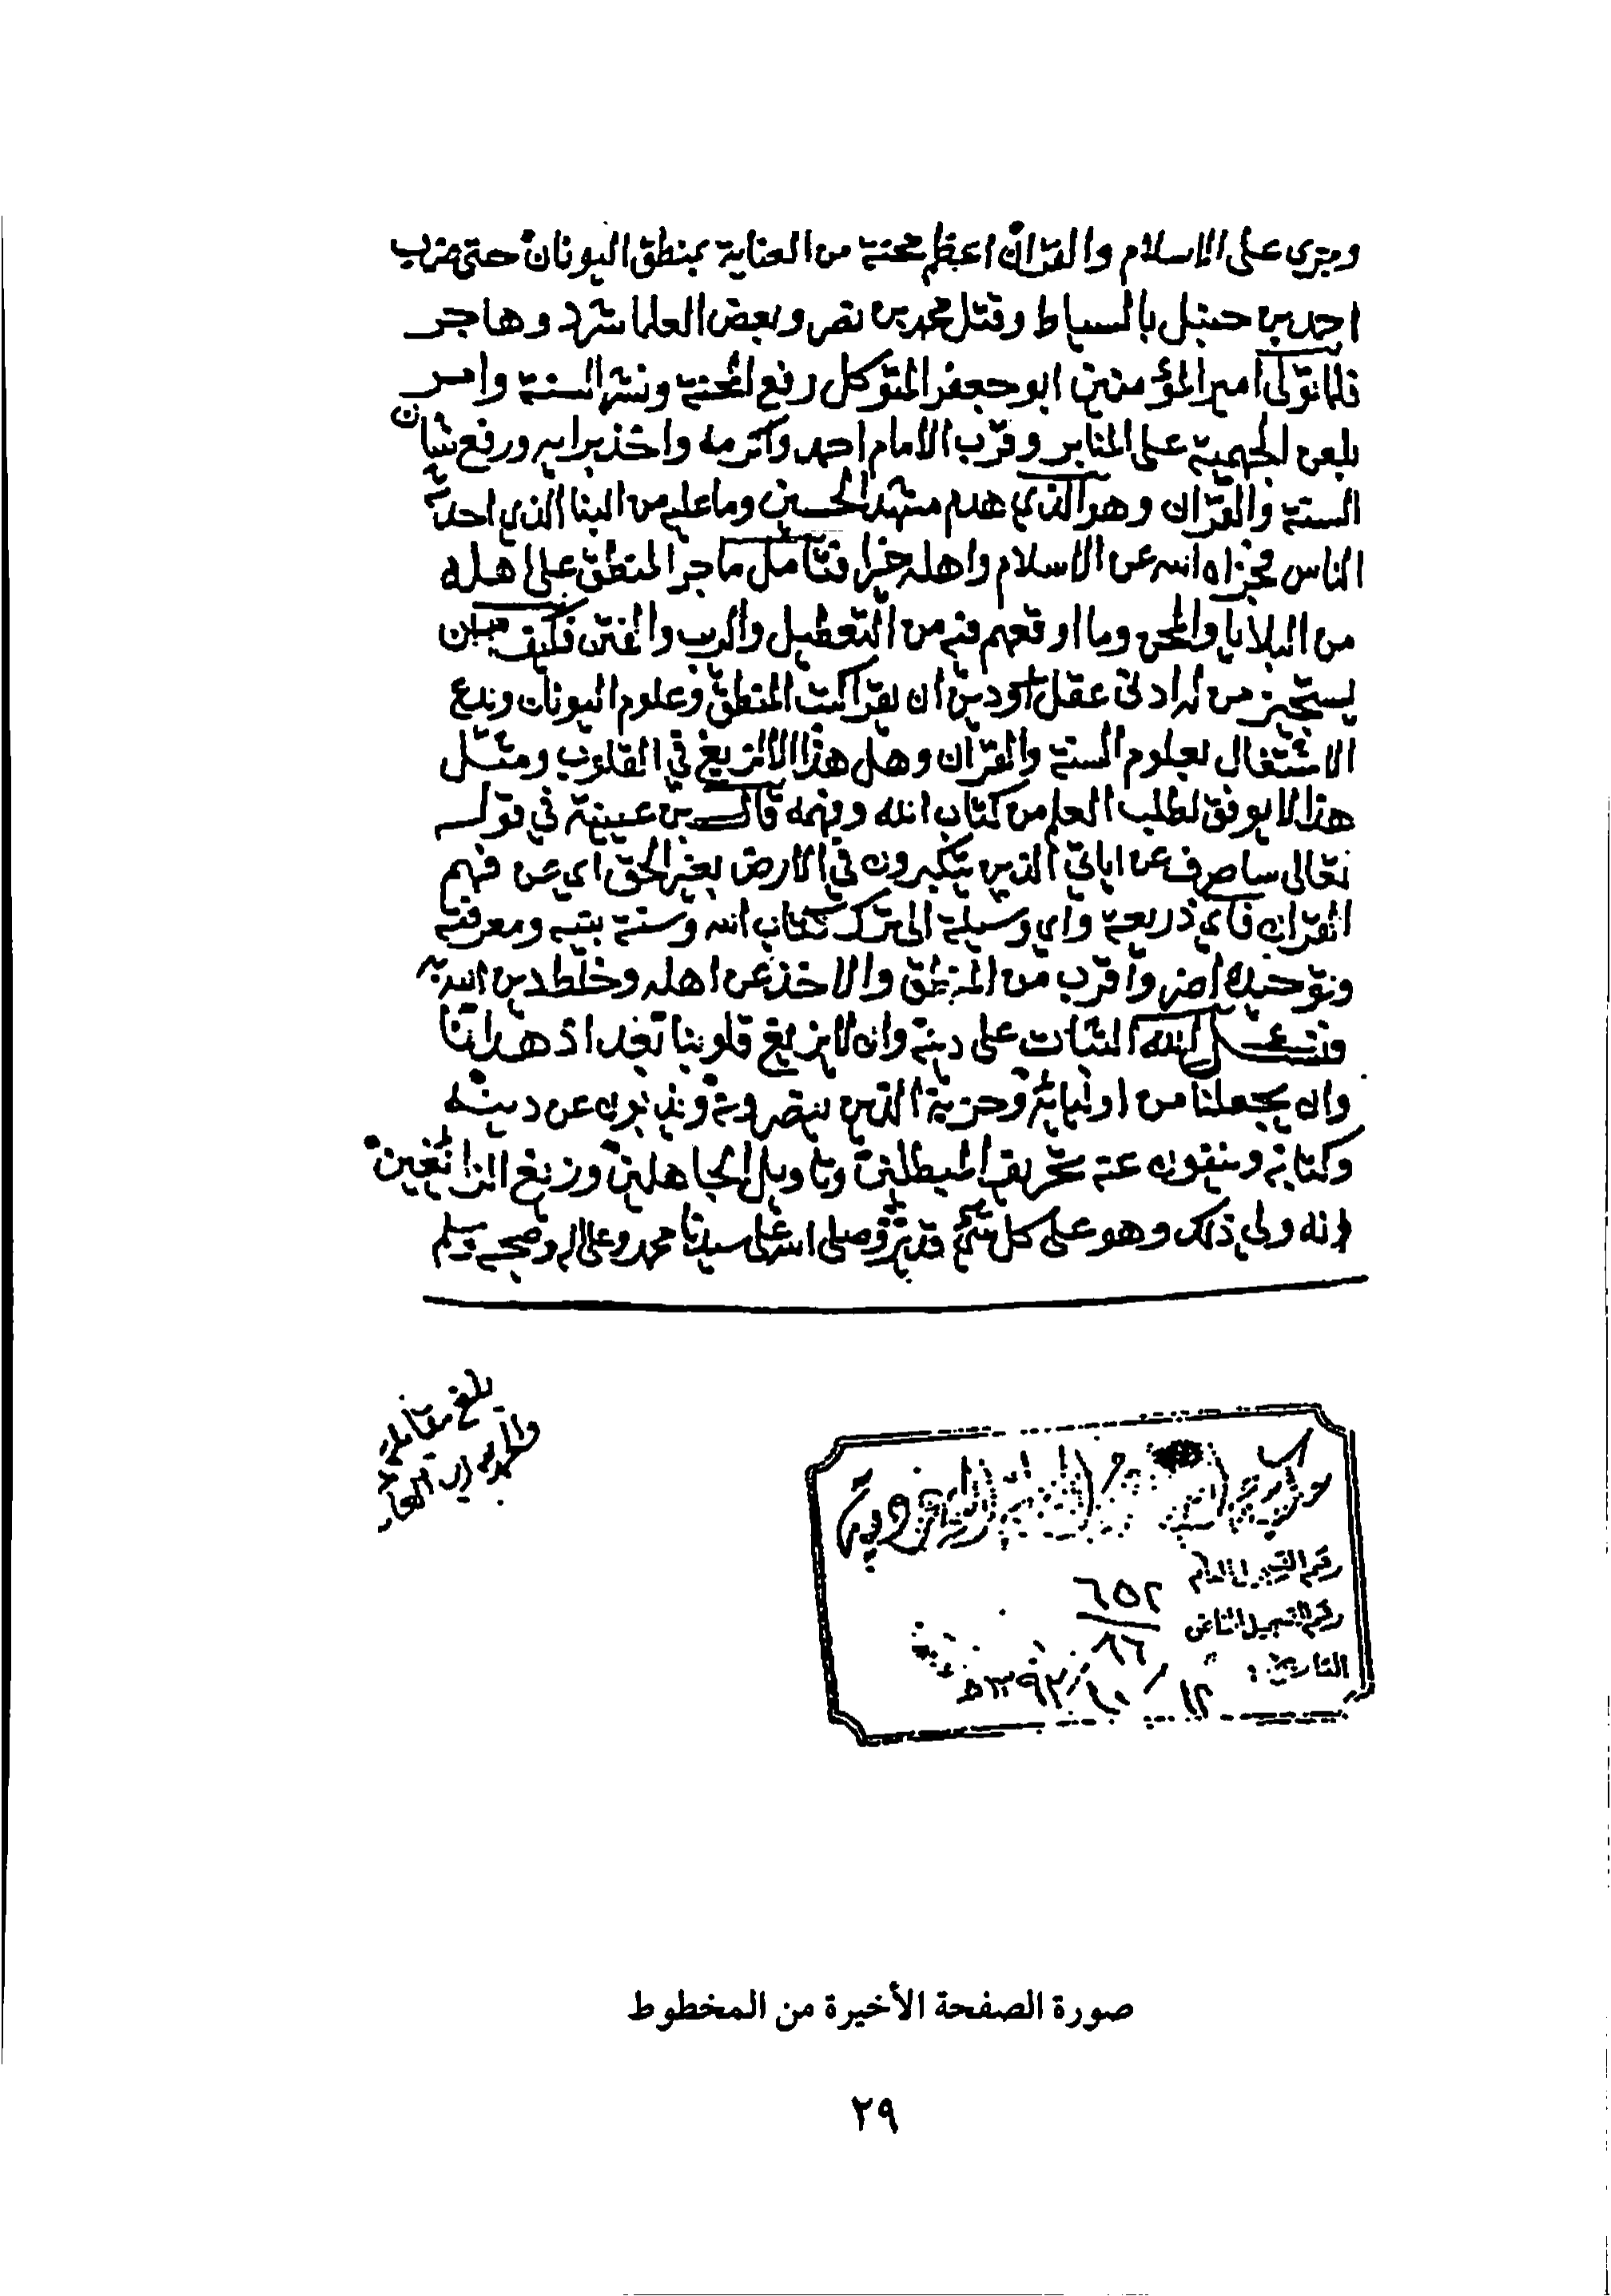 وجرى على الإسلام والقرآن اعظم محنة من العناية بمنطق اليونان حتى ضرب
احمد بن حنبل بالسياط وقتل محمد بن نصر وبعض العلما شرد وهاجر
فلما تولى امير المؤمنين ابو جعفر المتوكل رفع المحنة ونشر السنة وامر
بلعن الجهمية على المنابر وقرب الامام احمد واكرمه واخذ برايه ورفع شان
السنة والقرآن وهو الذي هدم مشهد الحسين وما عليه من البنا الذي احدثه
الناس فجزاه الله عن الاسلام واهله خيرا فتأمل ما جر المنطق على اهله
من البلايا والمحن وما اوقعهم فيه من التعطيل والريب والفتن فكيف
يستجيز من له ادنى عقل او دين ان يقرا كتب المنطق وعلوم اليونان ويدع
الاشتغال بعلوم السنة والقرآن وهل هذا الا لزيغ في القلوب ومثل
هذا لا يوفق لطلب العلم من كتاب الله وفهمه قال بن عيينة في قوله
تعالى ساصرف عن اياتي الذين يتكبرون في الارض بغير الحق اي عن فهم
القرآن فاي ذريعة واي وسيلة الى ترك كتاب الله وسنة نبيه ومعرفته
وتوحيده اضر واقرب من المنطق والاخذ عن اهله وخلط دين الله به
فنسئل الله الثبات على دينه وان لا يزيغ قلوبنا بعد اذ هدانا
وان يجعلنا من اوليائه وحزبه الذين ينصرونه ويذبون عن دينه
وكتابه وينفون عنه تحريف المبطلين وتاويل الجاهلين وزيغ الزائغين
انه ولي ذلك وهو على كل شيء قدير وصلى الله على سيدنا محمد وعلى اله وصحبه وسلم
بلغ مقابلة
والحمد لله رب العالمين
رقم التسجيل العام ٦٥٢
رقم التسجيل الخاص ٨٦
التاريخ: ١٢ / ١٠ / ١٣٩٢هـ
صورة الصفحة الأخيرة من المخطوط
٢٩